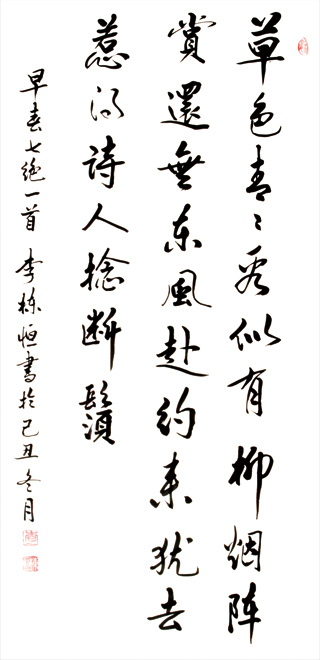 草色青々看似有柳烟阵
賞還無东風赴约来犹去
惹得詩人捻断鬚
早春七绝一首 李栋恒書於己丑冬月